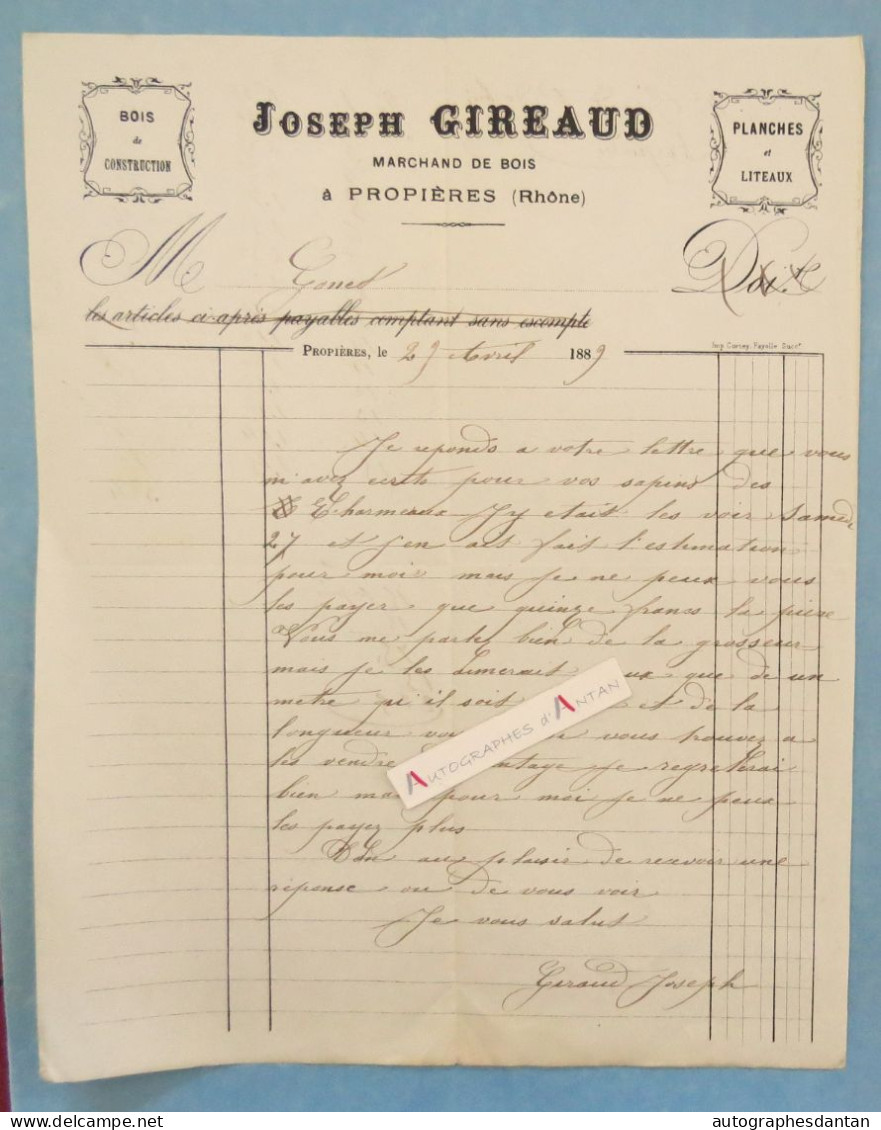 BOIS
de
CONSTRUCTION
JOSEPH GIREAUD
MARCHAND DE BOIS
à PROPIÈRES (Rhône)
PLANCHES
et
LITEAUX
M Gonet
Doit
les articles ci-après payables comptant sans escompte
PROPIÈRES, le 29 Avril 1889
Je reponds a votre lettre que vous
m'avez ecrite pour vos sapins des
Echarmeaux J'y etait les voir Samedi
27 et j'en ait fait l'estimation
pour moi mais je ne peux vous
les payer que quinze francs la piese
Vous me parlez bien de la grosseur
mais je les aimerait que de un
metre qu'il soit et de la
longueur vous trouvez a
les vendre je regreterai
bien mais pour moi je ne peux
les payez plus
au plaisir de recevoir une
réponse ou de vous voir
Je vous salut
Giraud Joseph
AUTOGRAPHES d'ANTAN
autographesdantan